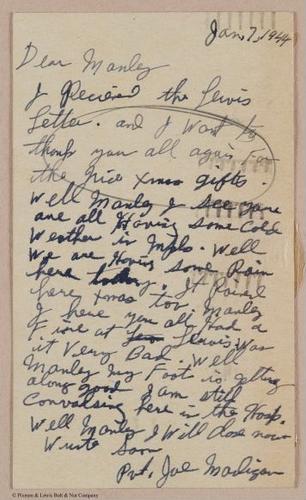 Jan. 7, 1944
Dear Manley
I Recieved the Lewis
Letter. and I Want to
thank you all again for
the Nice Xmas gifts.
Well Manley I see you
are all Having some Cold
Weather in Mpls. Well
We are Having some Rain
here today. It Rained
here Xmas too. Manley
I here you all Had a
Fire at Lewis Was
it Very Bad. Well
Manley My Foot is getting
along good I am still
Convalsing here in the Hosp.
Well Manley I Will close now
Write Soon
Pvt. Joe Madigan
© Picture & Lewis Bolt & Nut Company